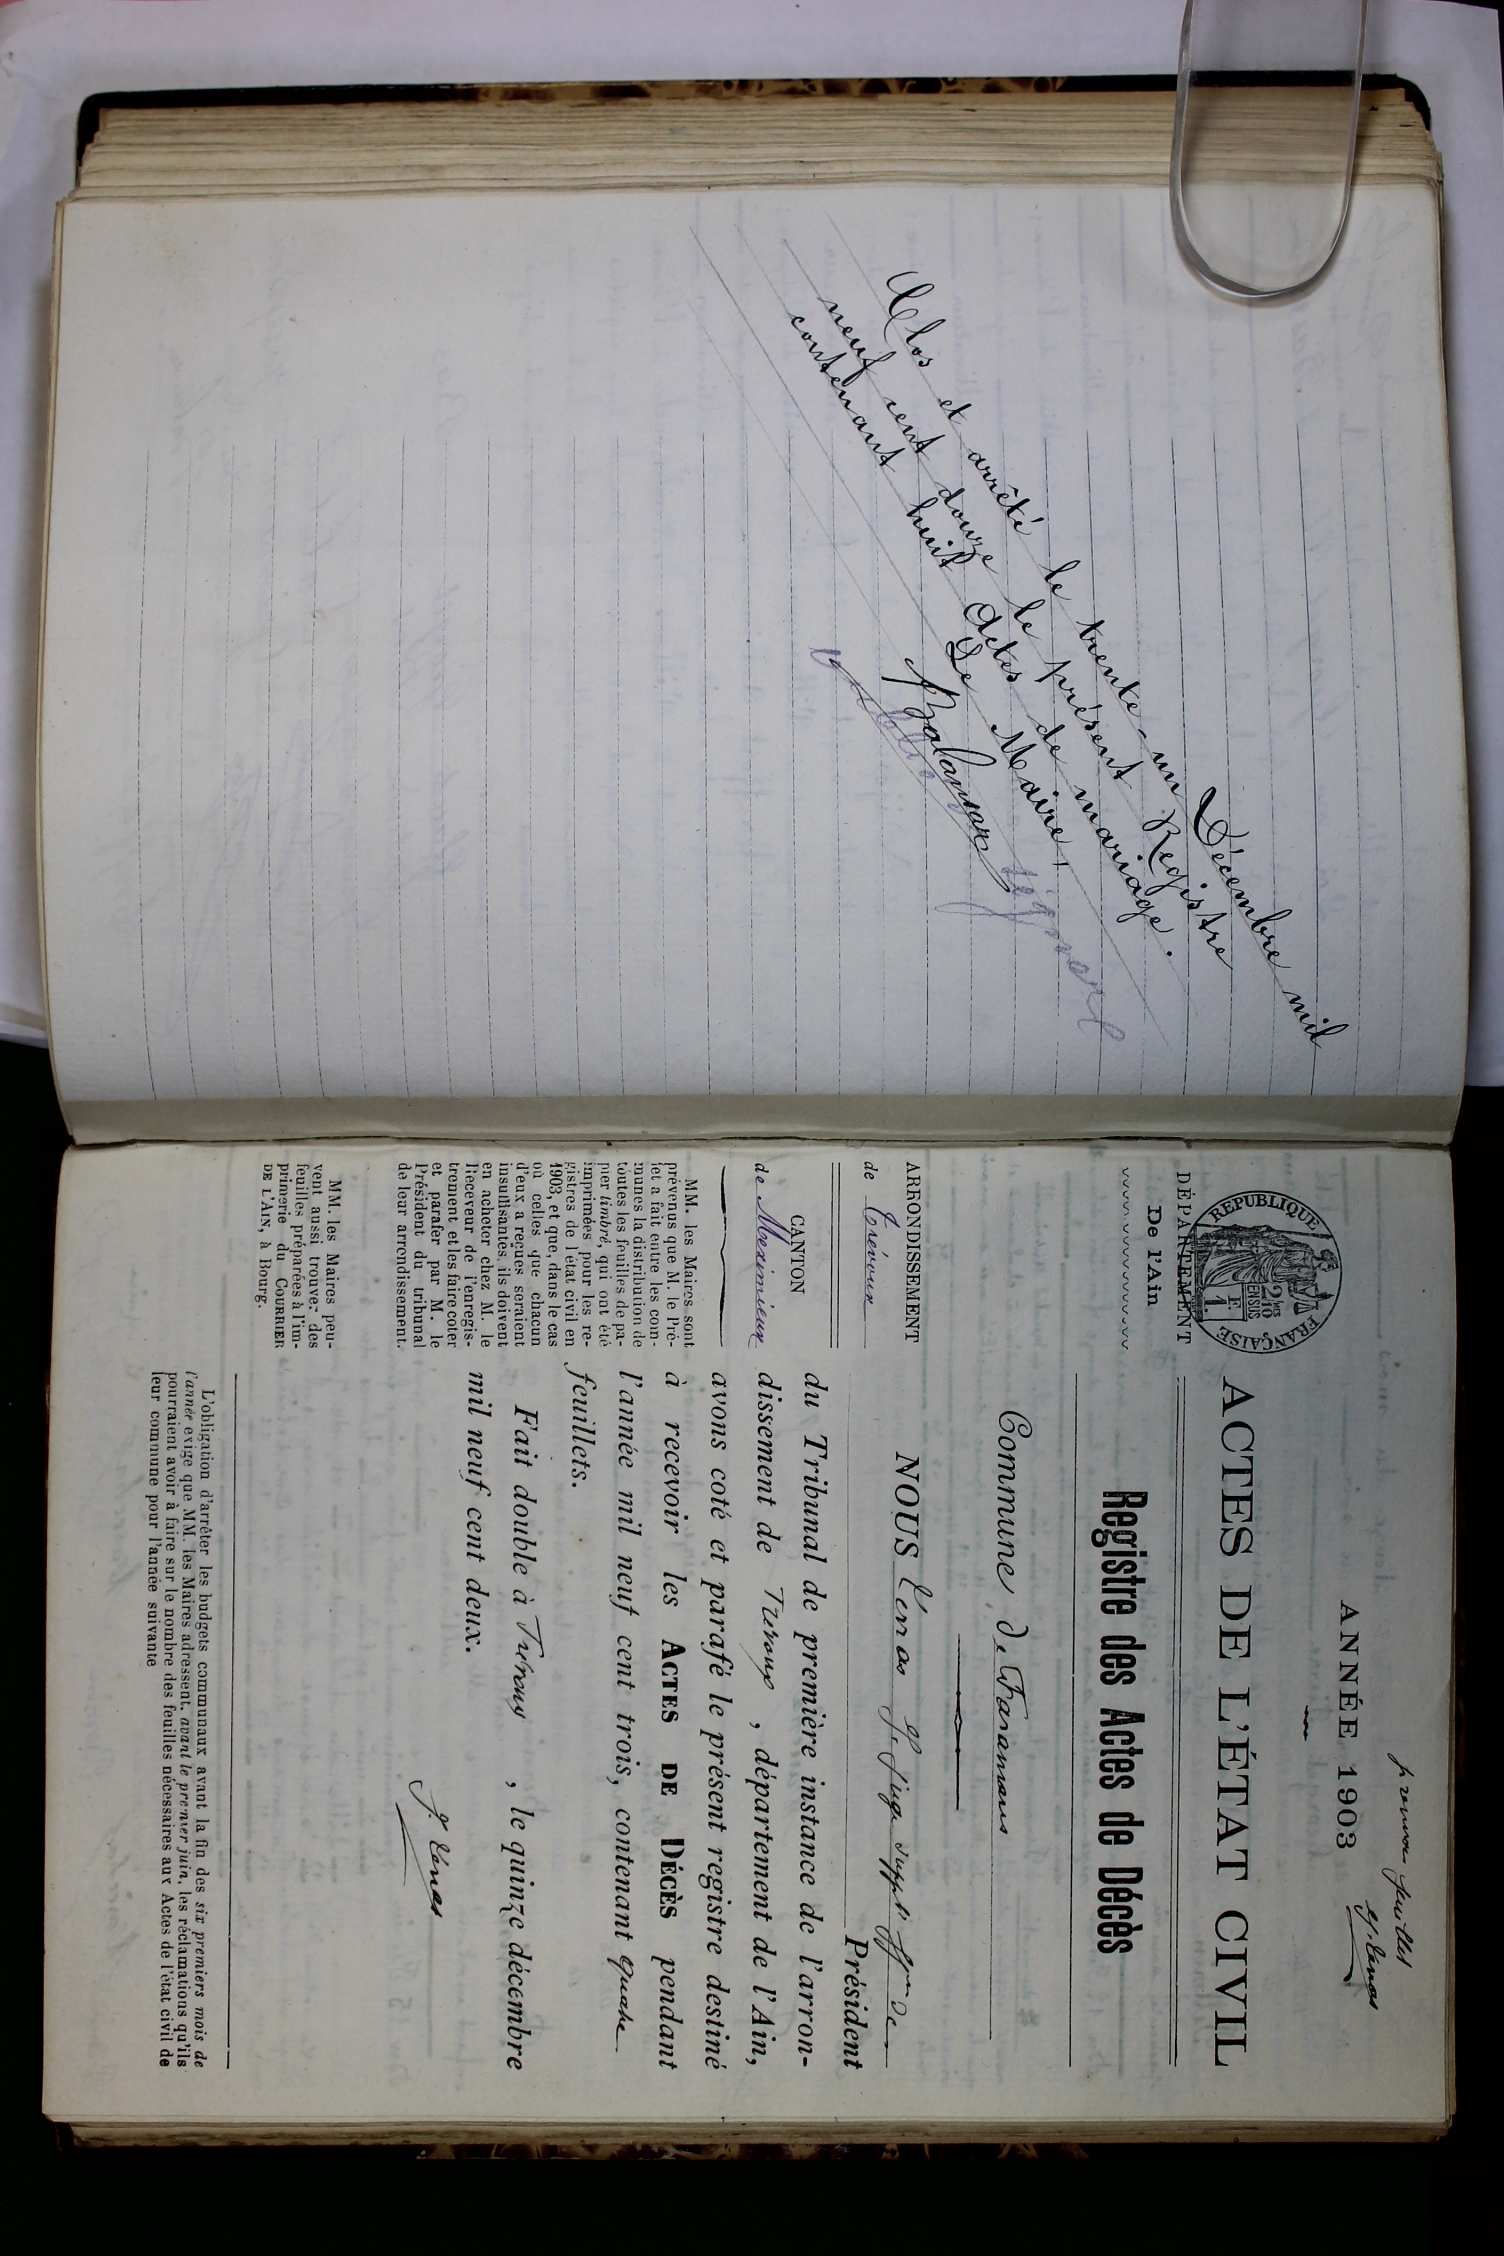 Clos et arrêté le trente-un Décembre mil
neuf cent douze le présent Registre
contenant huit Actes de mariage.
Le Maire,
premier feuillet
ANNÉE 1903
RÉPUBLIQUE FRANÇAISE
ACTES DE L'ÉTAT CIVIL
DÉPARTEMENT
De l'Ain
Registre des Actes de Décès
Commune de Faramans
ARRONDISSEMENT
de Trévoux
CANTON
de Meximieux
MM. les Maires sont
prévenus que M. le Pré-
fet a fait entre les com-
munes la distribution de
toutes les feuilles de pa-
pier timbré, qui ont été
imprimées pour les re-
gistres de l'état civil en
1903, et que, dans le cas
où celles que chacun
d'eux a reçues seraient
insuffisantes, ils doivent
en acheter chez M. le
Receveur de l'enregis-
trement et les faire coter
et parafer par M. le
Président du tribunal
de leur arrondissement.
MM. les Maires peu-
vent aussi trouver des
feuilles préparées à l'im-
primerie du COURRIER
DE L'AIN, à Bourg.
NOUS Cénas J. juge suppt ffons de
Président
du Tribunal de première instance de l'arron-
dissement de Trévoux, département de l'Ain,
avons coté et parafé le présent registre destiné
à recevoir les ACTES DE DÉCÈS pendant
l'année mil neuf cent trois, contenant quatre
feuillets.
Fait double à Trévoux, le quinze décembre
mil neuf cent deux.
J. Cénas
L'obligation d'arrêter les budgets communaux avant la fin des six premiers mois de
l'année exige que MM. les Maires adressent, avant le premier juin, les réclamations qu'ils
pourraient avoir à faire sur le nombre des feuilles nécessaires aux Actes de l'état civil de
leur commune pour l'année suivante